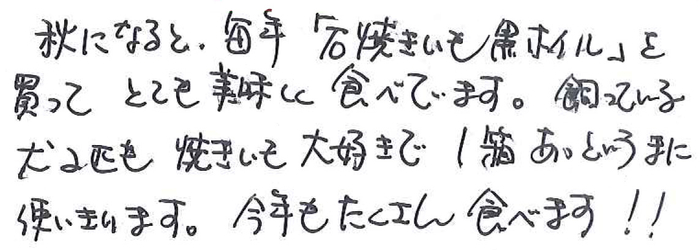 秋になると、毎年「石焼きいも黒ホイル」を
買って とても美味しく 食べています。 飼っている
犬2匹も 焼きいも 大好きで 1箱 あっというまに
使いきります。 今年も たくさん 食べます!!